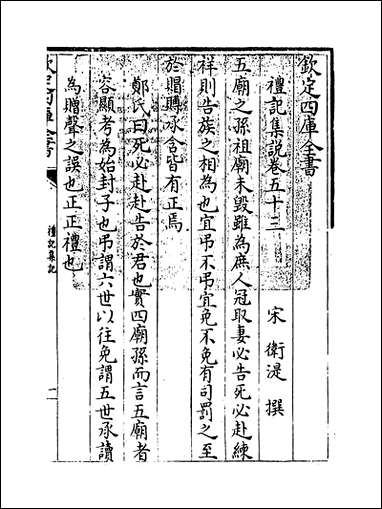 欽定四庫全書
禮記集說卷五十三
宋 衛湜 撰
五廟之孫祖廟未毀雖為庶人冠取妻必告死必赴練
祥則告族之相為也宜弔不弔宜免不免有司罰之至
於賵賻咏含皆有正焉
鄭氏曰死必赴赴告於君也實四廟孫而言五廟者
容顯考為始封子也弔謂六世以往免謂五世承讀
為贈聲之誤也正正禮也
欽定四庫全書
禮記集說
一